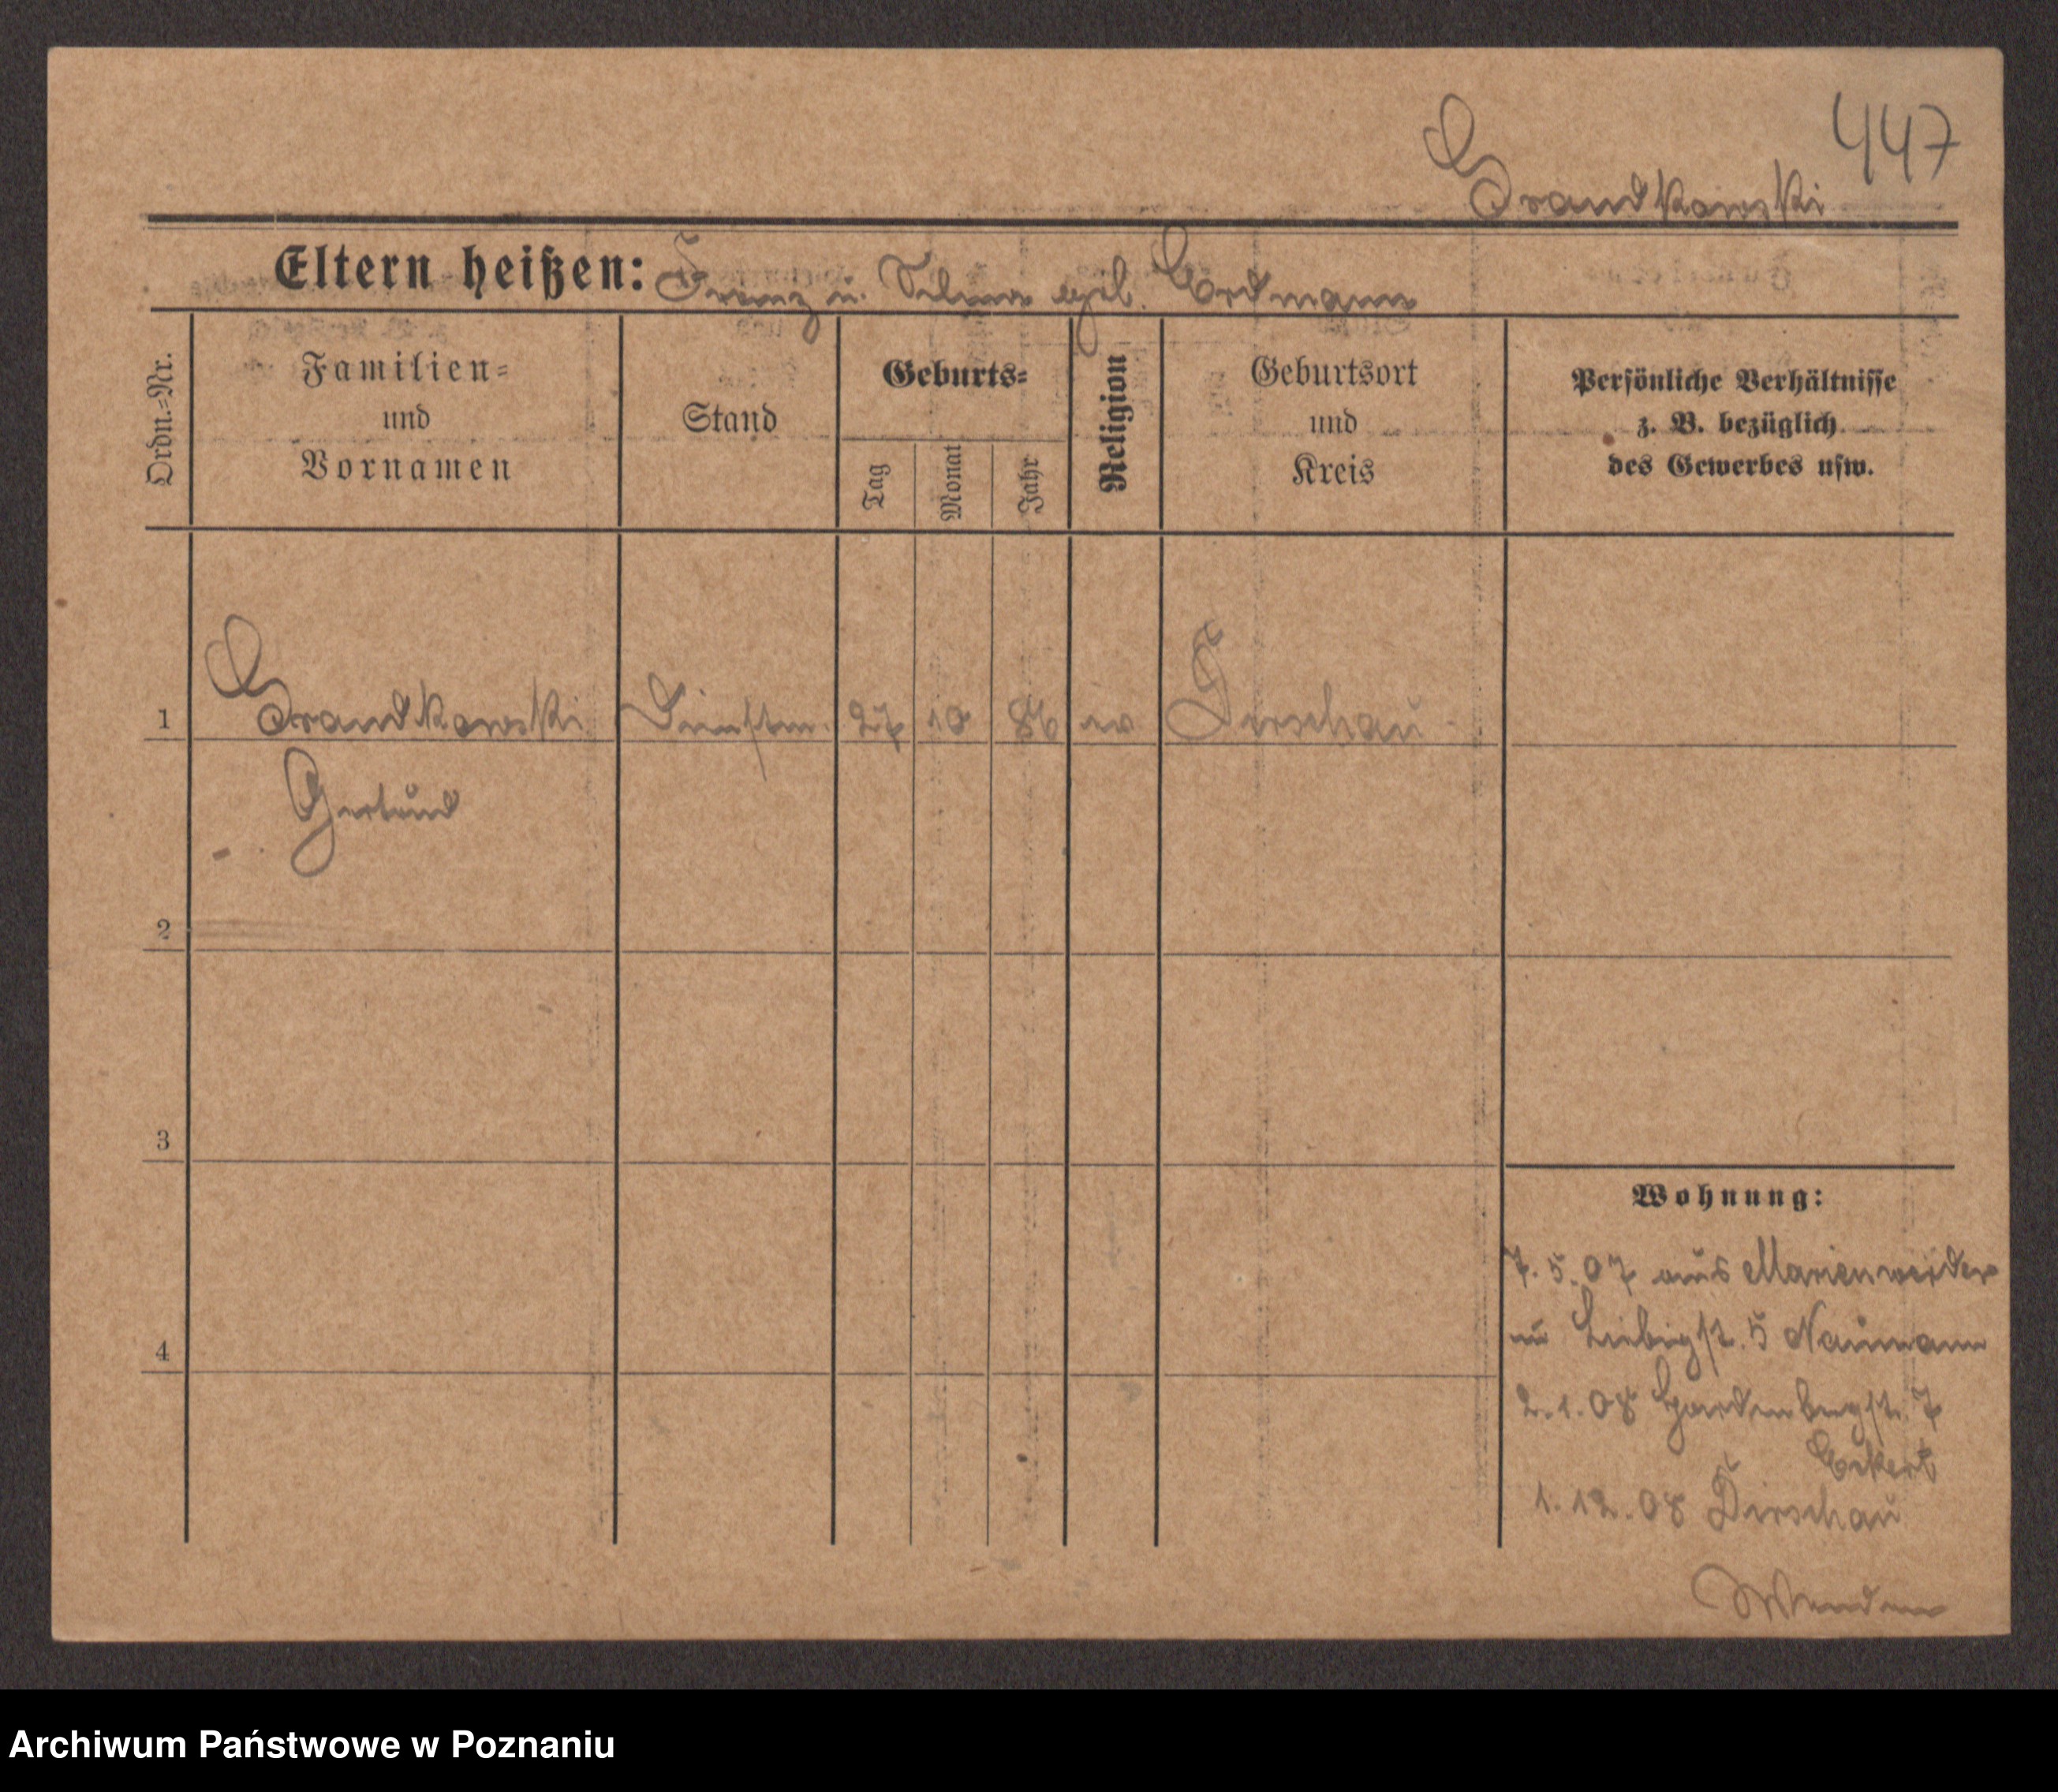 447
Grandkowski
Eltern heißen: Franz u. Selma geb. Erdmann
Ordn.=Nr.
Familien=
und
Vornamen
Stand
Geburts=
Tag
Monat
Jahr
Religion
Geburtsort
und
Kreis
Persönliche Verhältnisse
z. B. bezüglich
des Gewerbes usw.
1
Grandkowski
Dienstm. 27 10 86 ev Dirschau
Gertrud
2
3
4
Wohnung:
7. 5. 07 aus Marienwerder
Liebigst. 5 Naumann
2. 1. 08 Hardenbergst. 7
Eckert
1. 12. 08 Dirschau
Wenden
Archiwum Państwowe w Poznaniu